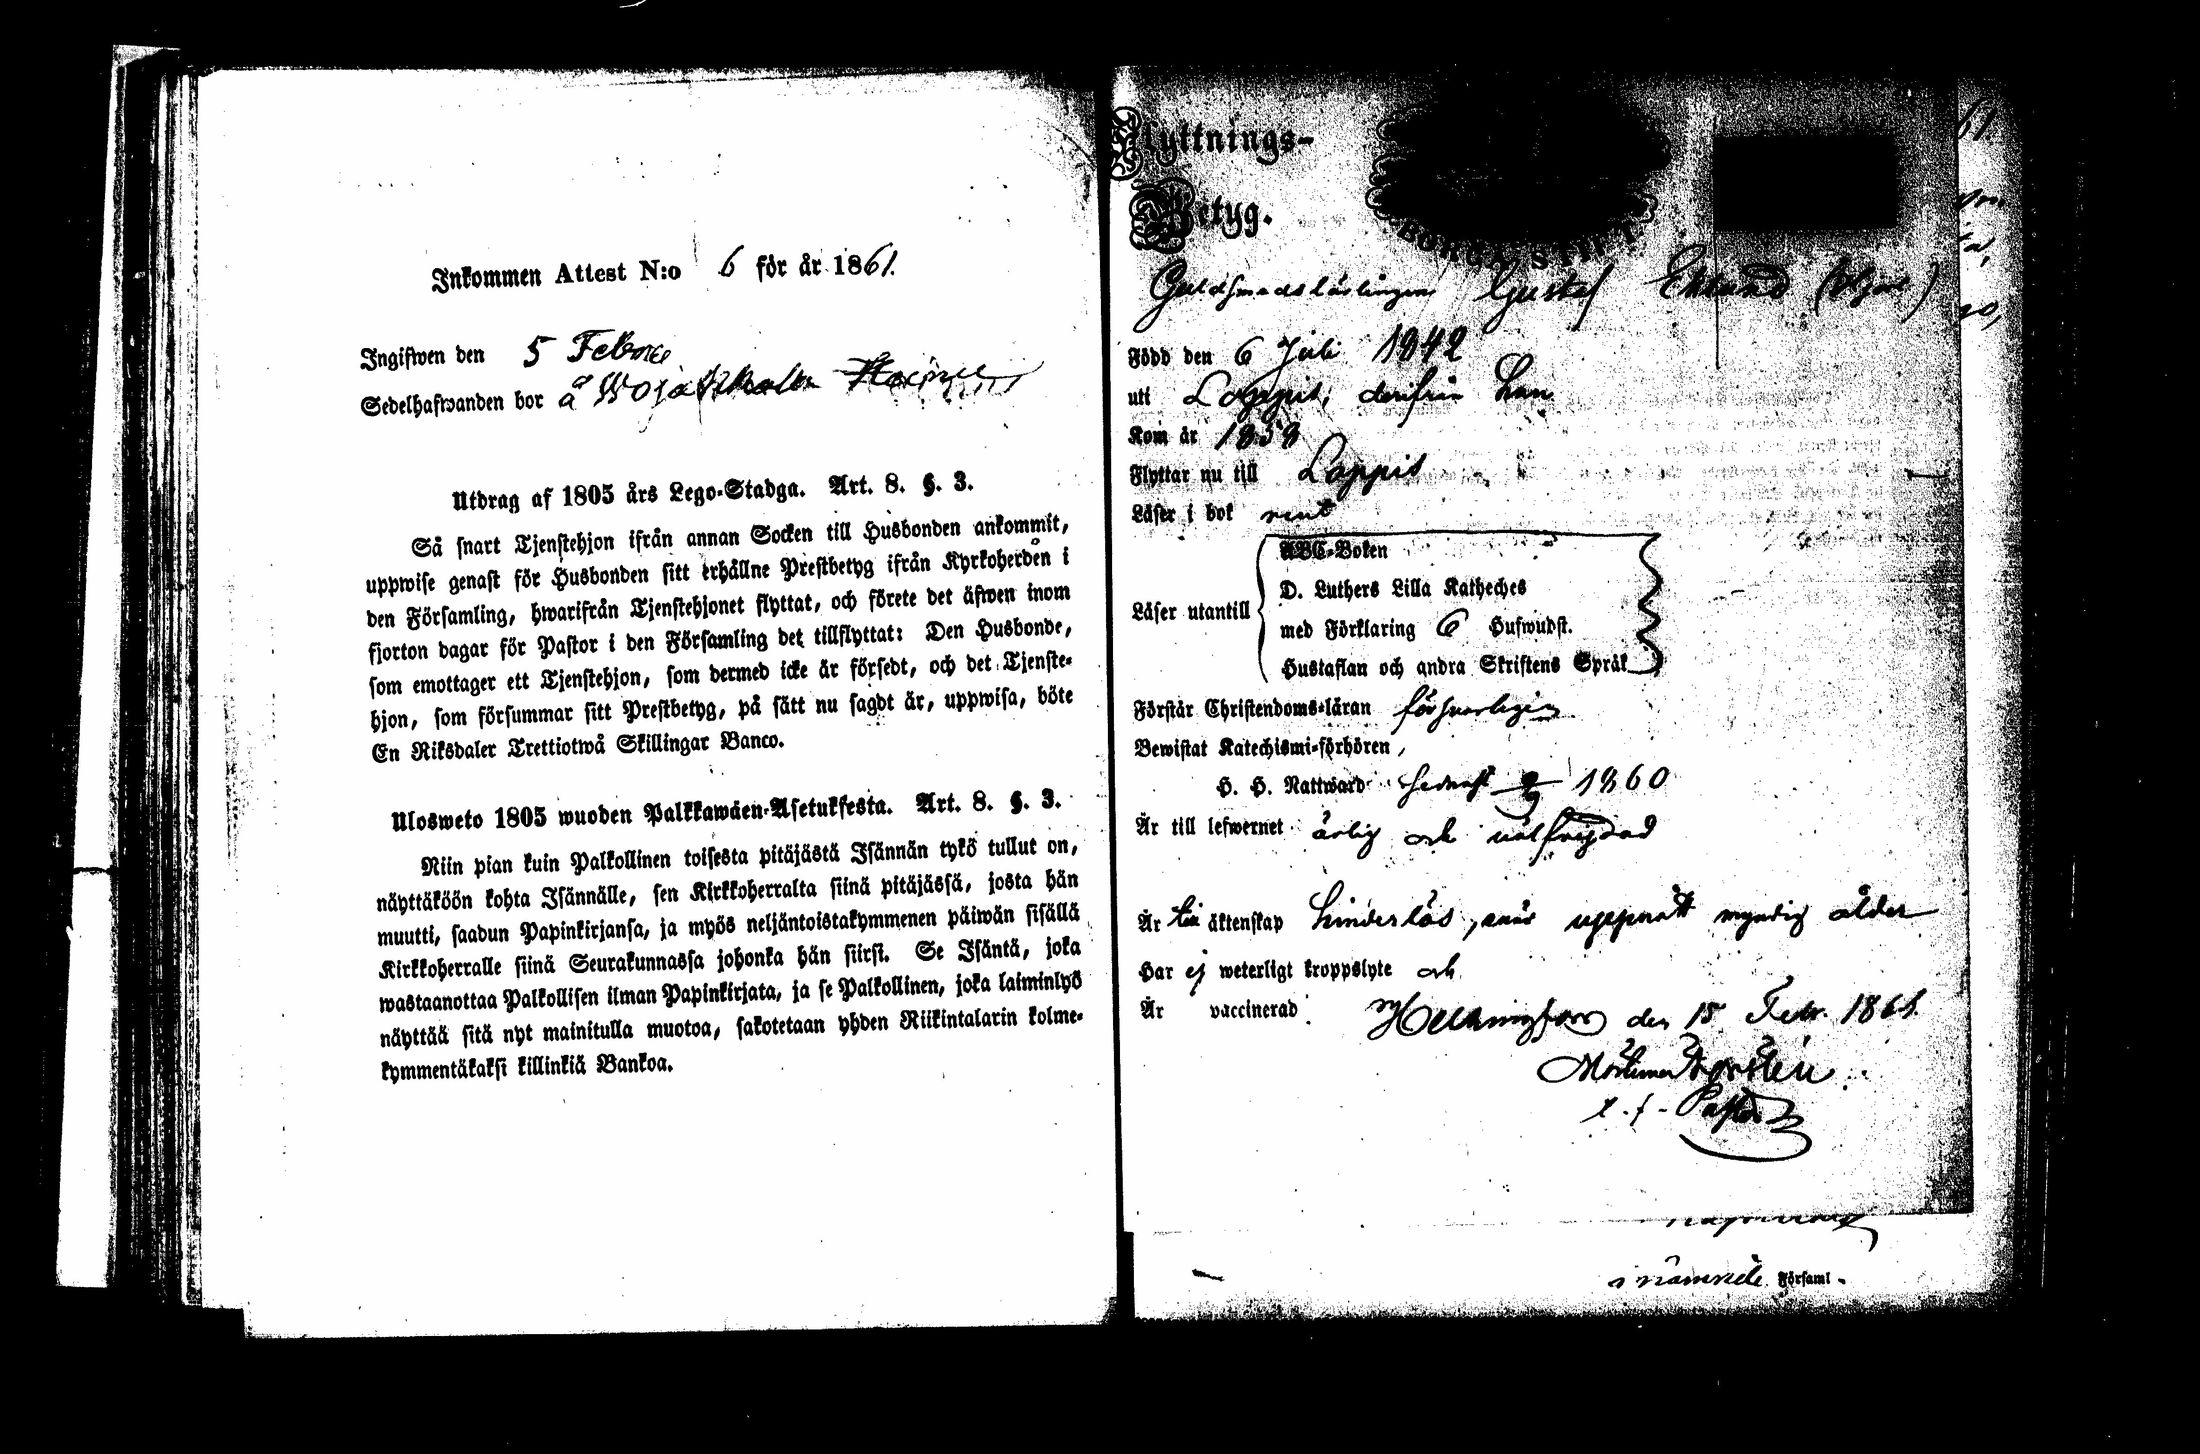 Inkommen Attest N:o 6 för år 1861.
Ingifwen den 5 Febr
Sedelhafwanden bor å
Utdrag af 1805 års Lego-Stadga. Art. 8. §. 3.
Så snart Tjenstehjon ifrån annan Socken till Husbonden ankommit,
uppwise genast för Husbonden sitt erhållne Prestbetyg ifrån Kyrkoherden i
den Församling, hwarifrån Tjenstehjonet flyttat, och förete det äfwen inom
fjorton dagar för Pastor i den Församling det tillflyttat: Den Husbonde,
som emottager ett Tjenstehjon, som dermed icke är försedt, och det Tjenste-
hjon, som försummar sitt Prestbetyg, på sätt nu sagdt är, uppwisa, böte
En Riksdaler Trettiotwå Skillingar Banco.
Ulosweto 1805 wuoden Palkkawäen-Asetuksesta. Art. 8. §. 3.
Niin pian kuin Palkollinen toisesta pitäjästä Isännän tykö tullut on,
näyttäköön kohta Isännälle, sen Kirkkoherralta siinä pitäjässä, josta hän
muutti, saadun Papinkirjansa, ja myös neljäntoistakymmenen päiwän sisällä
Kirkkoherralle siinä Seurakunnassa johonka hän siirsi. Se Isäntä, joka
wastaanottaa Palkollisen ilman Papinkirjata, ja se Palkollinen, joka laiminlyö
näyttää sitä nyt mainitulla muotoa, sakotetaan yhden Riikintalarin kolme-
kymmentäkaksi killinkiä Bankoa.
Flyttnings-
Betyg.
BORGÅ STIFT
Guldsmedslärlingen Gustaf Eklund
Född den 6 Juli 1842
uti Loppis, derifrån han
Kom år 1858
Flyttar nu till Loppis
Läser i bok rent
ABC-Boken
D. Luthers Lilla Katheches
Läser utantill
med Förklaring 6 Hufwudst.
Hustaflan och andra Skriftens Språk
Förstår Christendoms-läran försvarligen
Bewistat Katechismi-förhören,
H. H. Nattward sednast 1860
Är till lefwernet ärlig och välfrejdad
Är till äktenskap hinderlös, när uppnått myndig ålder
Har ej weterligt kroppslyte och
Är vaccinerad
Helsingfors den 15 Febr. 1861.
t. f. Pastor
i nämnde Församl.